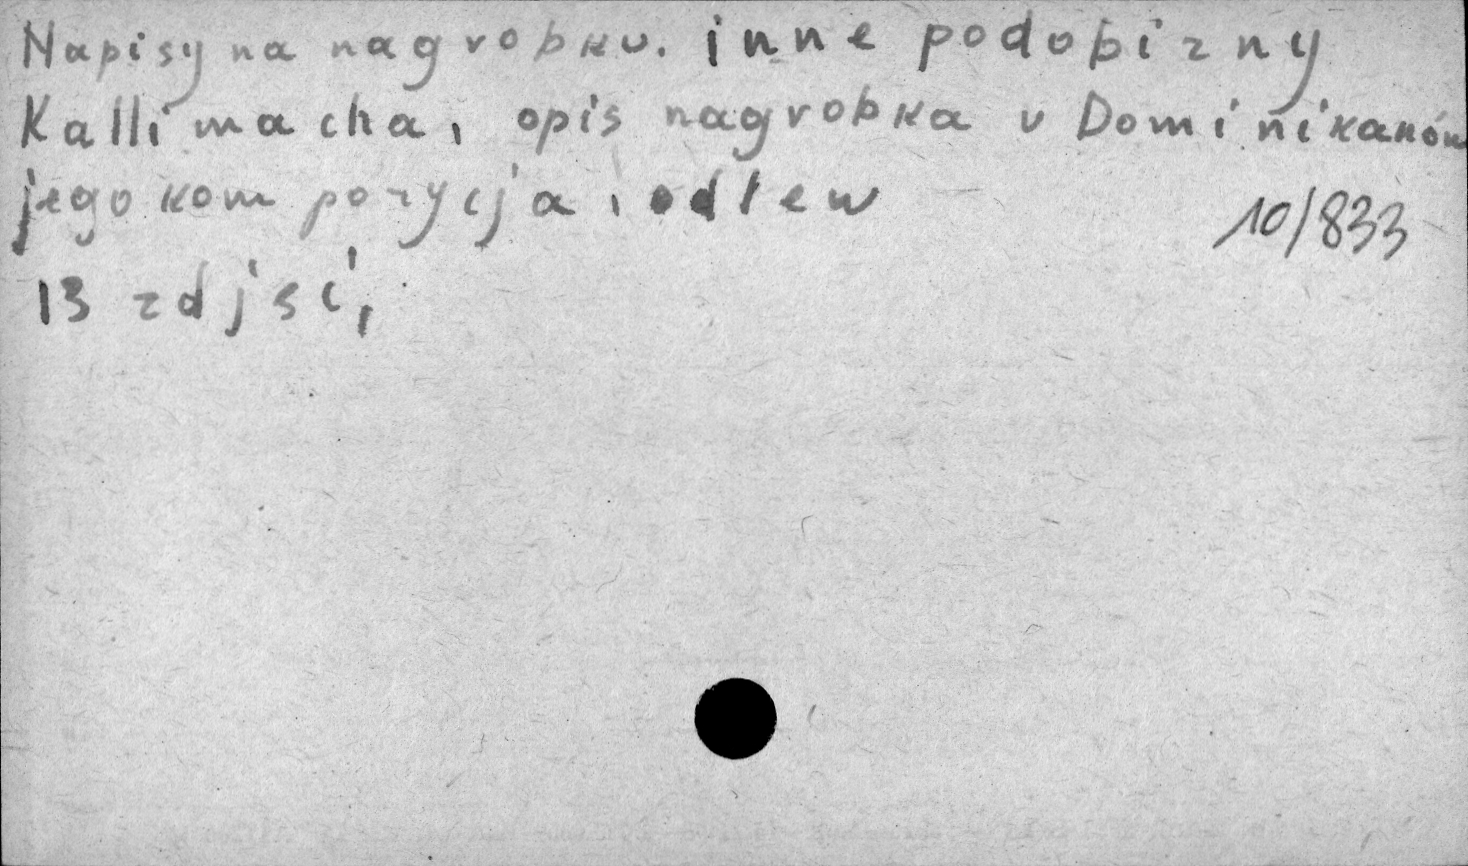 Napisy na nagrobku. inne podobizny
Kallimacha, opis nagrobka u Dominikanów
jego kompozycja, odlew
10/833
13 zdjęć,